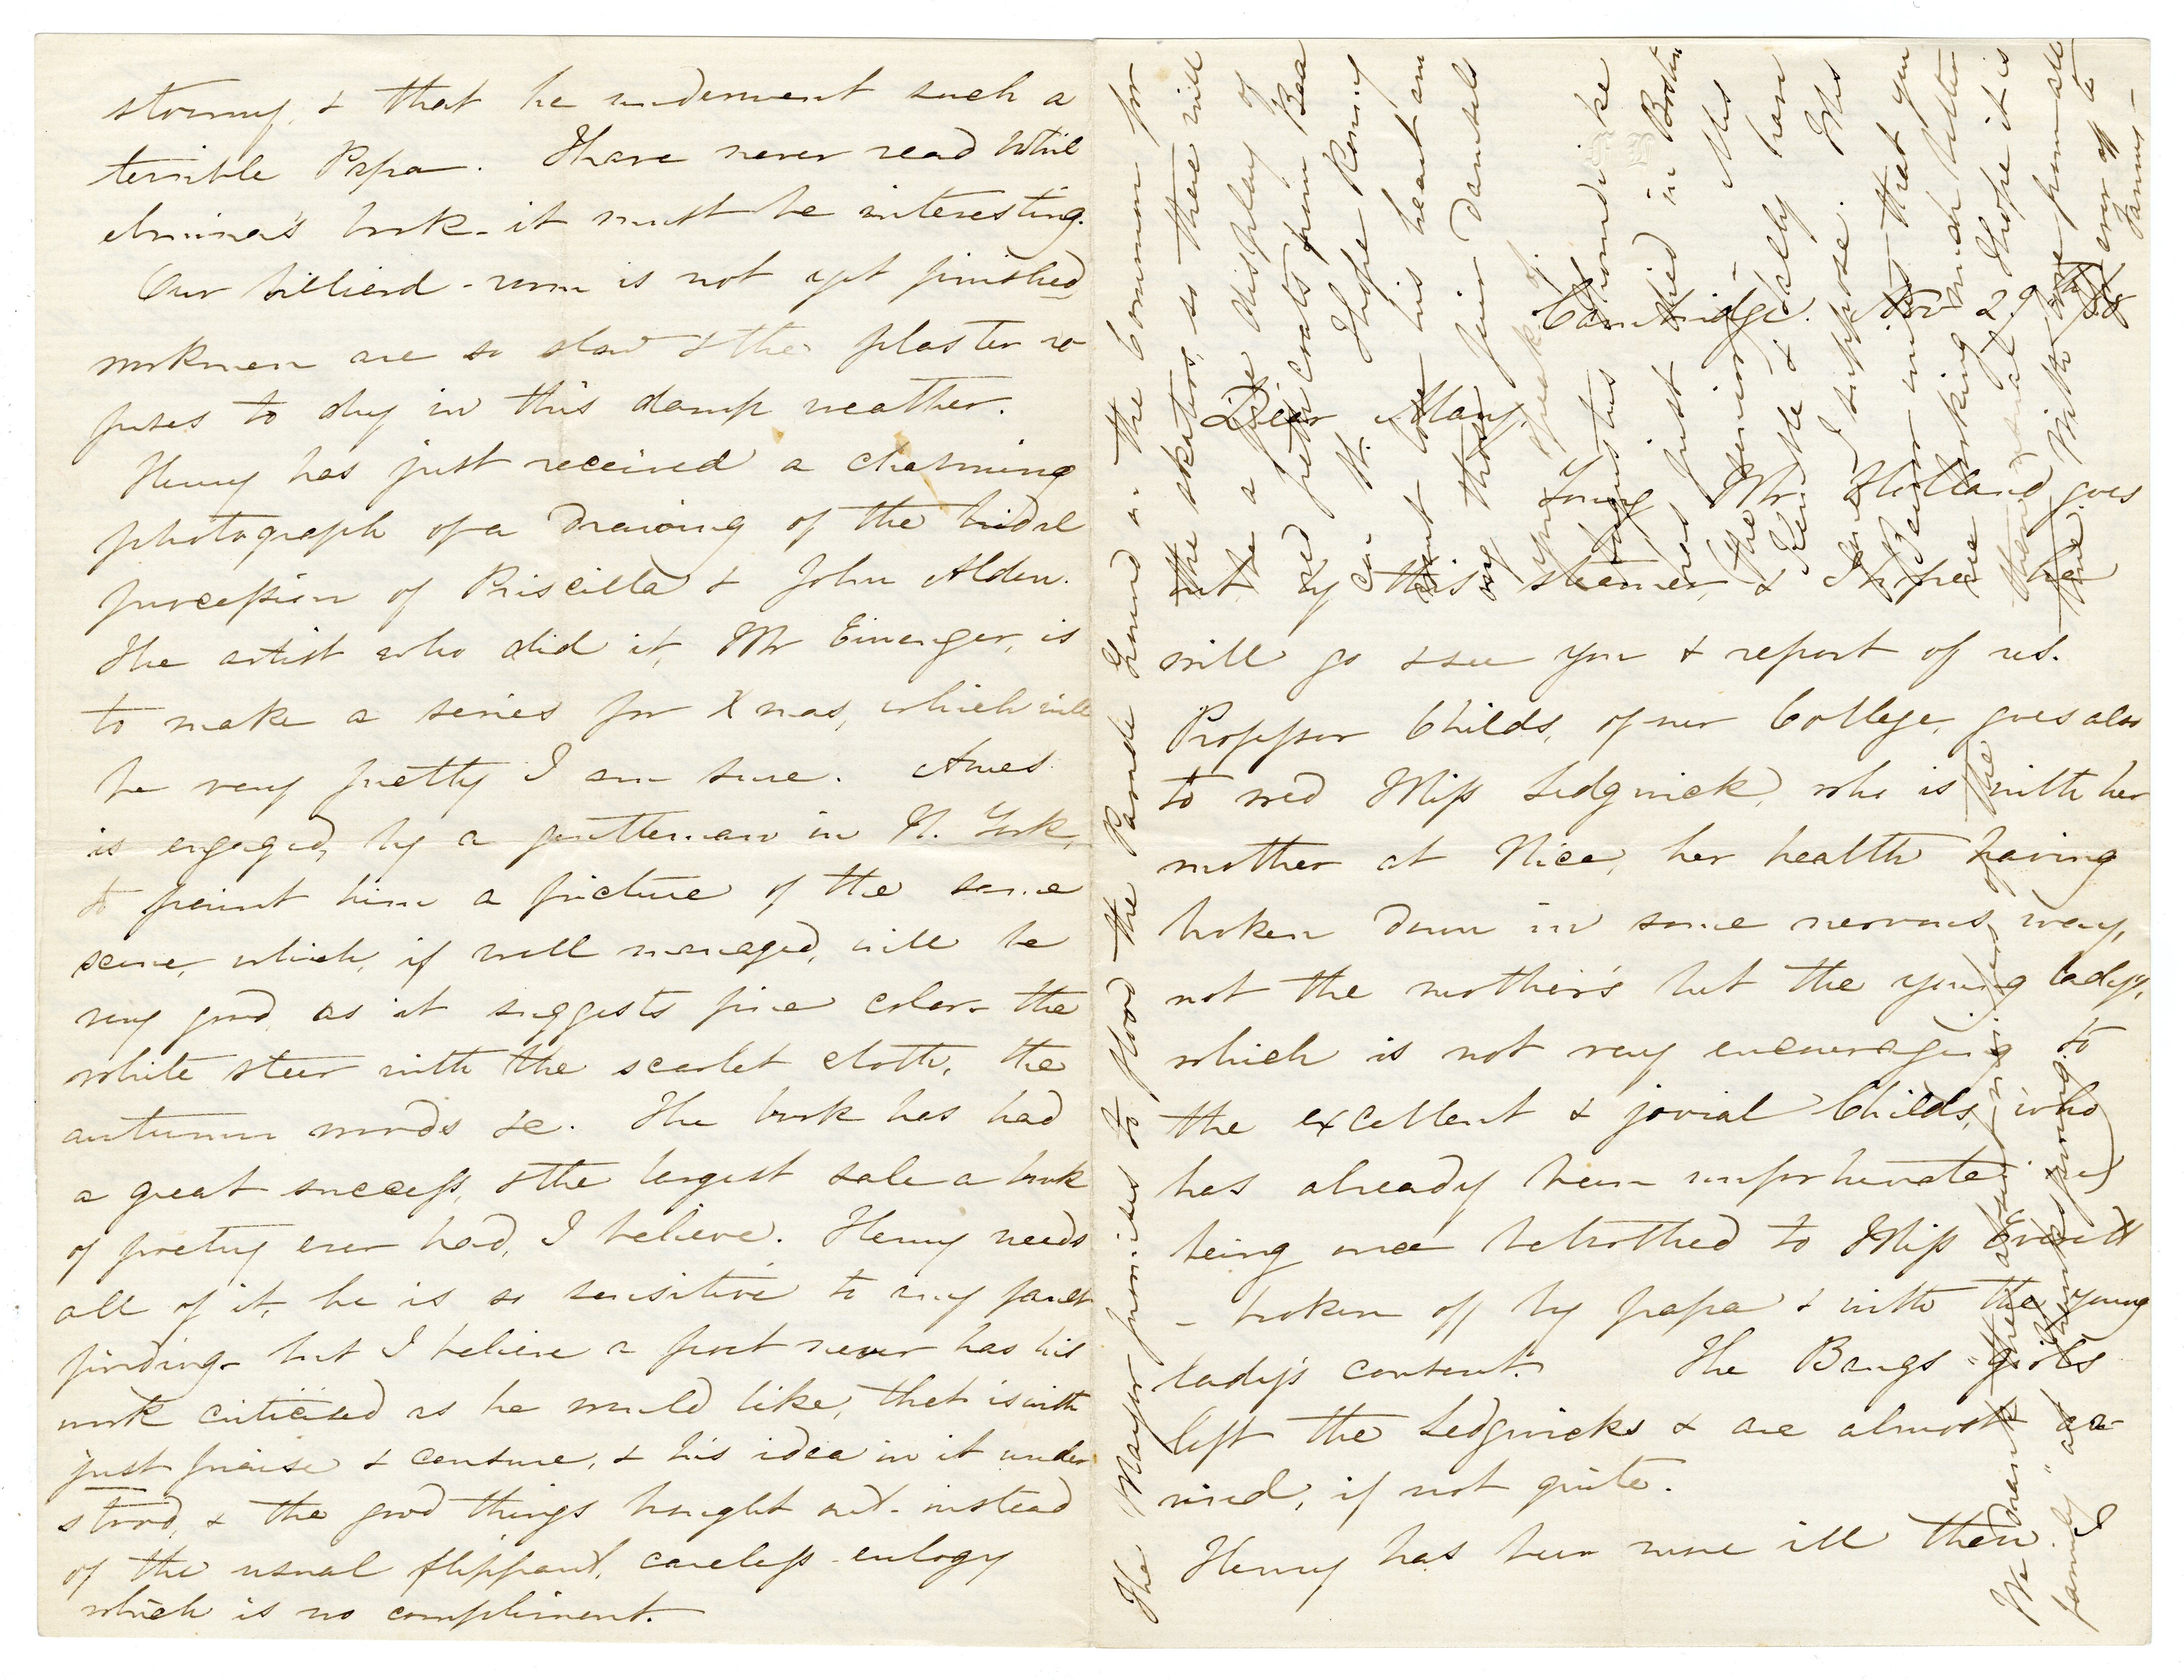 stormy, & that he underwent such a
terrible Papa. I have never read Wil
elmina's book - it must be interesting.
Our billiard-room is not yet finished
workmen are so slow & the plaster re
fuses to dry in this damp weather.
Henry has just received a charming
photograph of a drawing of the bridal
procession of Priscilla & John Alden.
The artist who did it, Mr Ehninger, is
to make a series for Xmas, which will
be very pretty I am sure. Ames
is engaged, by a gentleman in N. York,
to paint him a picture of the same
scene, which, if well managed, will be
very good, as it suggests fine color - the
white steer with the scarlet cloth, the
autumn woods &c. The book has had
a great success, & the largest sale a book
of poetry ever had, I believe. Henry needs
all of it, he is so sensitive to any fault
finding - but I believe a poet never has his
work criticised as he would like, that is with
just praise & censure, & his idea in it under
stood, & the good things brought out - instead
of the usual flippant, careless eulogy
which is no compliment.
Cambridge. Nov 29 58
Dear Mary,
Young Mr Holland goes
out by this steamer, & I hope he
will go & see you & report of us.
Professor Childs, of our College, goes also
to wed Miss Sedgwick, who is with her
mother at Nice, her health having
broken down in some nervous way,
not the mother's but the young lady's,
which is not very encouraging to
the excellent & jovial Childs, who
has already been unfortunate in
being once betrothed to Miss Everett
- broken off by papa & with the young
lady's consent. The Bangs girls
left the Sedgwicks & are almost ar
rived, if not quite.
Henry has been more ill than
The Mayor promises to flood the Parade Ground on the Common for
the skaters, so there will
be a fine display of
red petticoats from Bea
con St. I hope Ronny
wont lose his heart am
ong those fair damsels
you speak of.
Augustus Thorndike
has just died in Boston
the Senior - Mrs
I suppose. Mrs
that you
I hope it is
With love from all
ever aff yr
Fanny -
We drank the
family" at